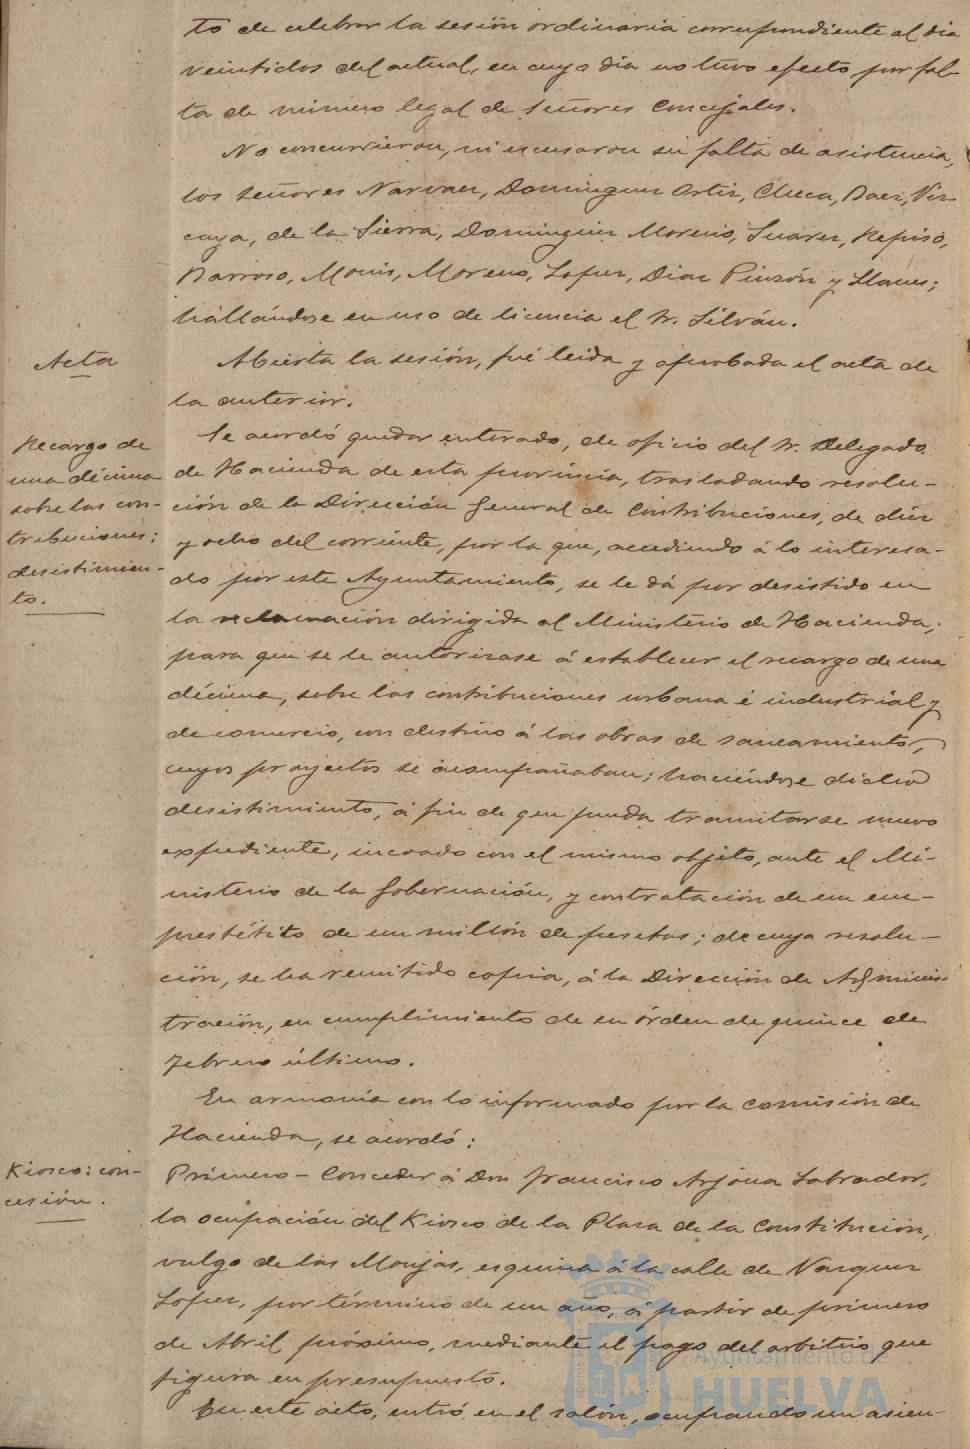 to de celebrar la sesión ordinaria correspondiente al dia
veintidos del actual, en cuyo dia no tuvo efecto, por fal-
ta de número legal de Señores Concejales.
No concurrieron, ni escusaron su falta de asistencia,
los Señores Narvaez, Dominguez Ortiz, Checa, Baez, Viz-
caya, de la Sierra, Dominguez Moreno, Suarez, Repiso,
Barroso, Monis, Moreno, Lopez, Diaz Pinzón y Llanes;
hallándose en uso de licencia el Sr. Silván.
Acta
Abierta la sesión, fué leida y aprobada el acta de
la anterior.
Recargo de
una décima
sobre las con-
tribuciones:
desistimien-
to.
Se acordó quedar enterado, de oficio del Sr. Delegado
de Hacienda de esta provincia, trasladando resolu-
ción de la Dirección General de Contribuciones, de diez
y ocho del corriente, por la que, accediendo á lo interesa-
do por este Ayuntamiento, se le dá por desistido en
la reclamación dirigida al Ministerio de Hacienda,
para que se le autorizase á establecer el recargo de una
décima, sobre las contribuciones urbana é industrial y
de comercio, con destino á las obras de saneamiento,
cuyos proyectos se acompañaban; haciéndose dicho
desistimiento, á fin de que pueda tramitarse nuevo
expediente, incoado con el mismo objeto, ante el Mi-
nisterio de la Gobernación, y contratación de un em-
prestítito de un millón de pesetas; de cuya resolu-
ción, se ha remitido copia, á la Dirección de Adminis-
tración, en cumplimiento de su órden de quince de
Febrero último.
En armonía con lo informado por la Comisión de
Hacienda, se acordó:
Kiosco: con-
cesión.
Primero - Conceder á Don Francisco Arjona Labrador,
la ocupación del Kiosco de la Plaza de la Constitución,
vulgo de las Monjas, esquina á la calle de Vazquez
Lopez, por término de un año, á partir de primero
de Abril próximo, mediante el pago del arbitrio que
figura en presupuesto.
En este acto, entró en el salón, ocupando un asien-
Ayuntamiento de
HUELVA